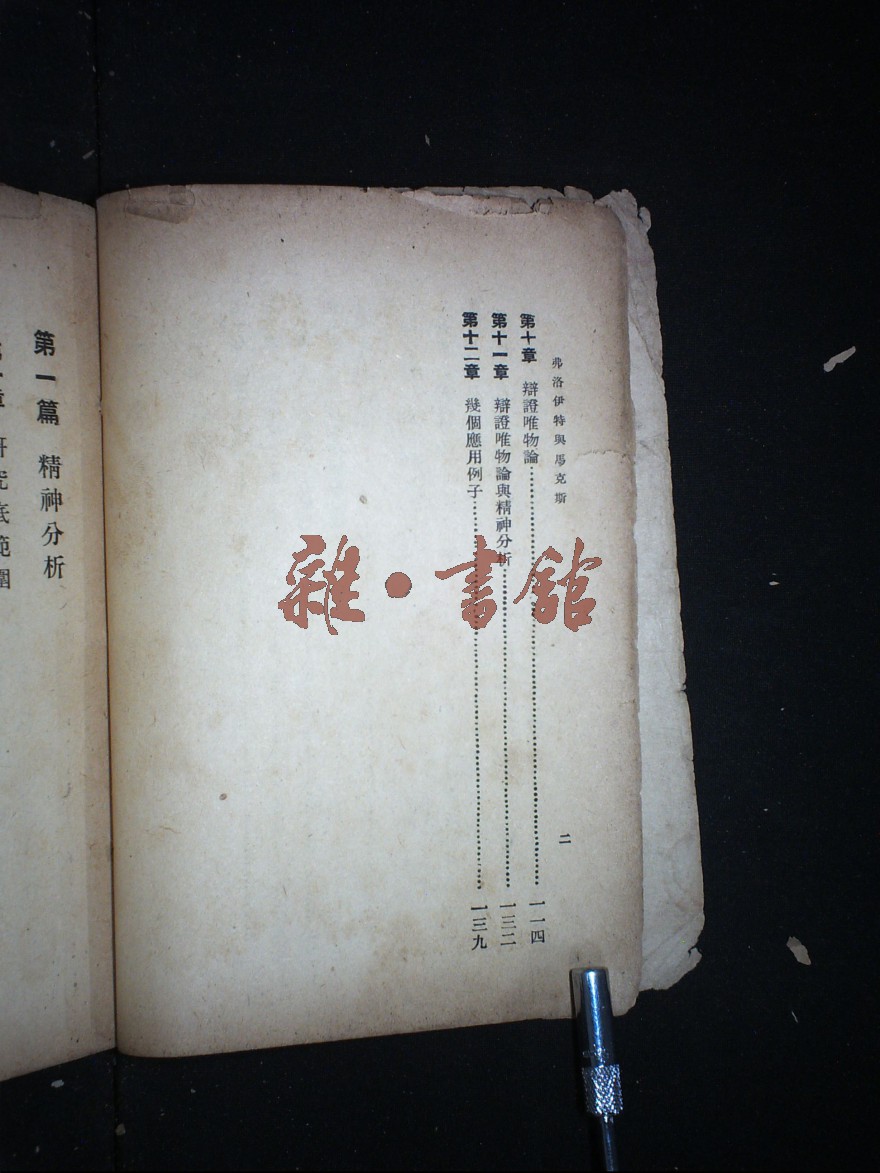 弗洛伊特與馬克斯
二
第十章 辯證唯物論……一一四
第十一章 辯證唯物論與精神分析……一三二
第十二章 幾個應用例子……一三九
第一篇 精神分析
第一章 研究底範圍
雜·書館